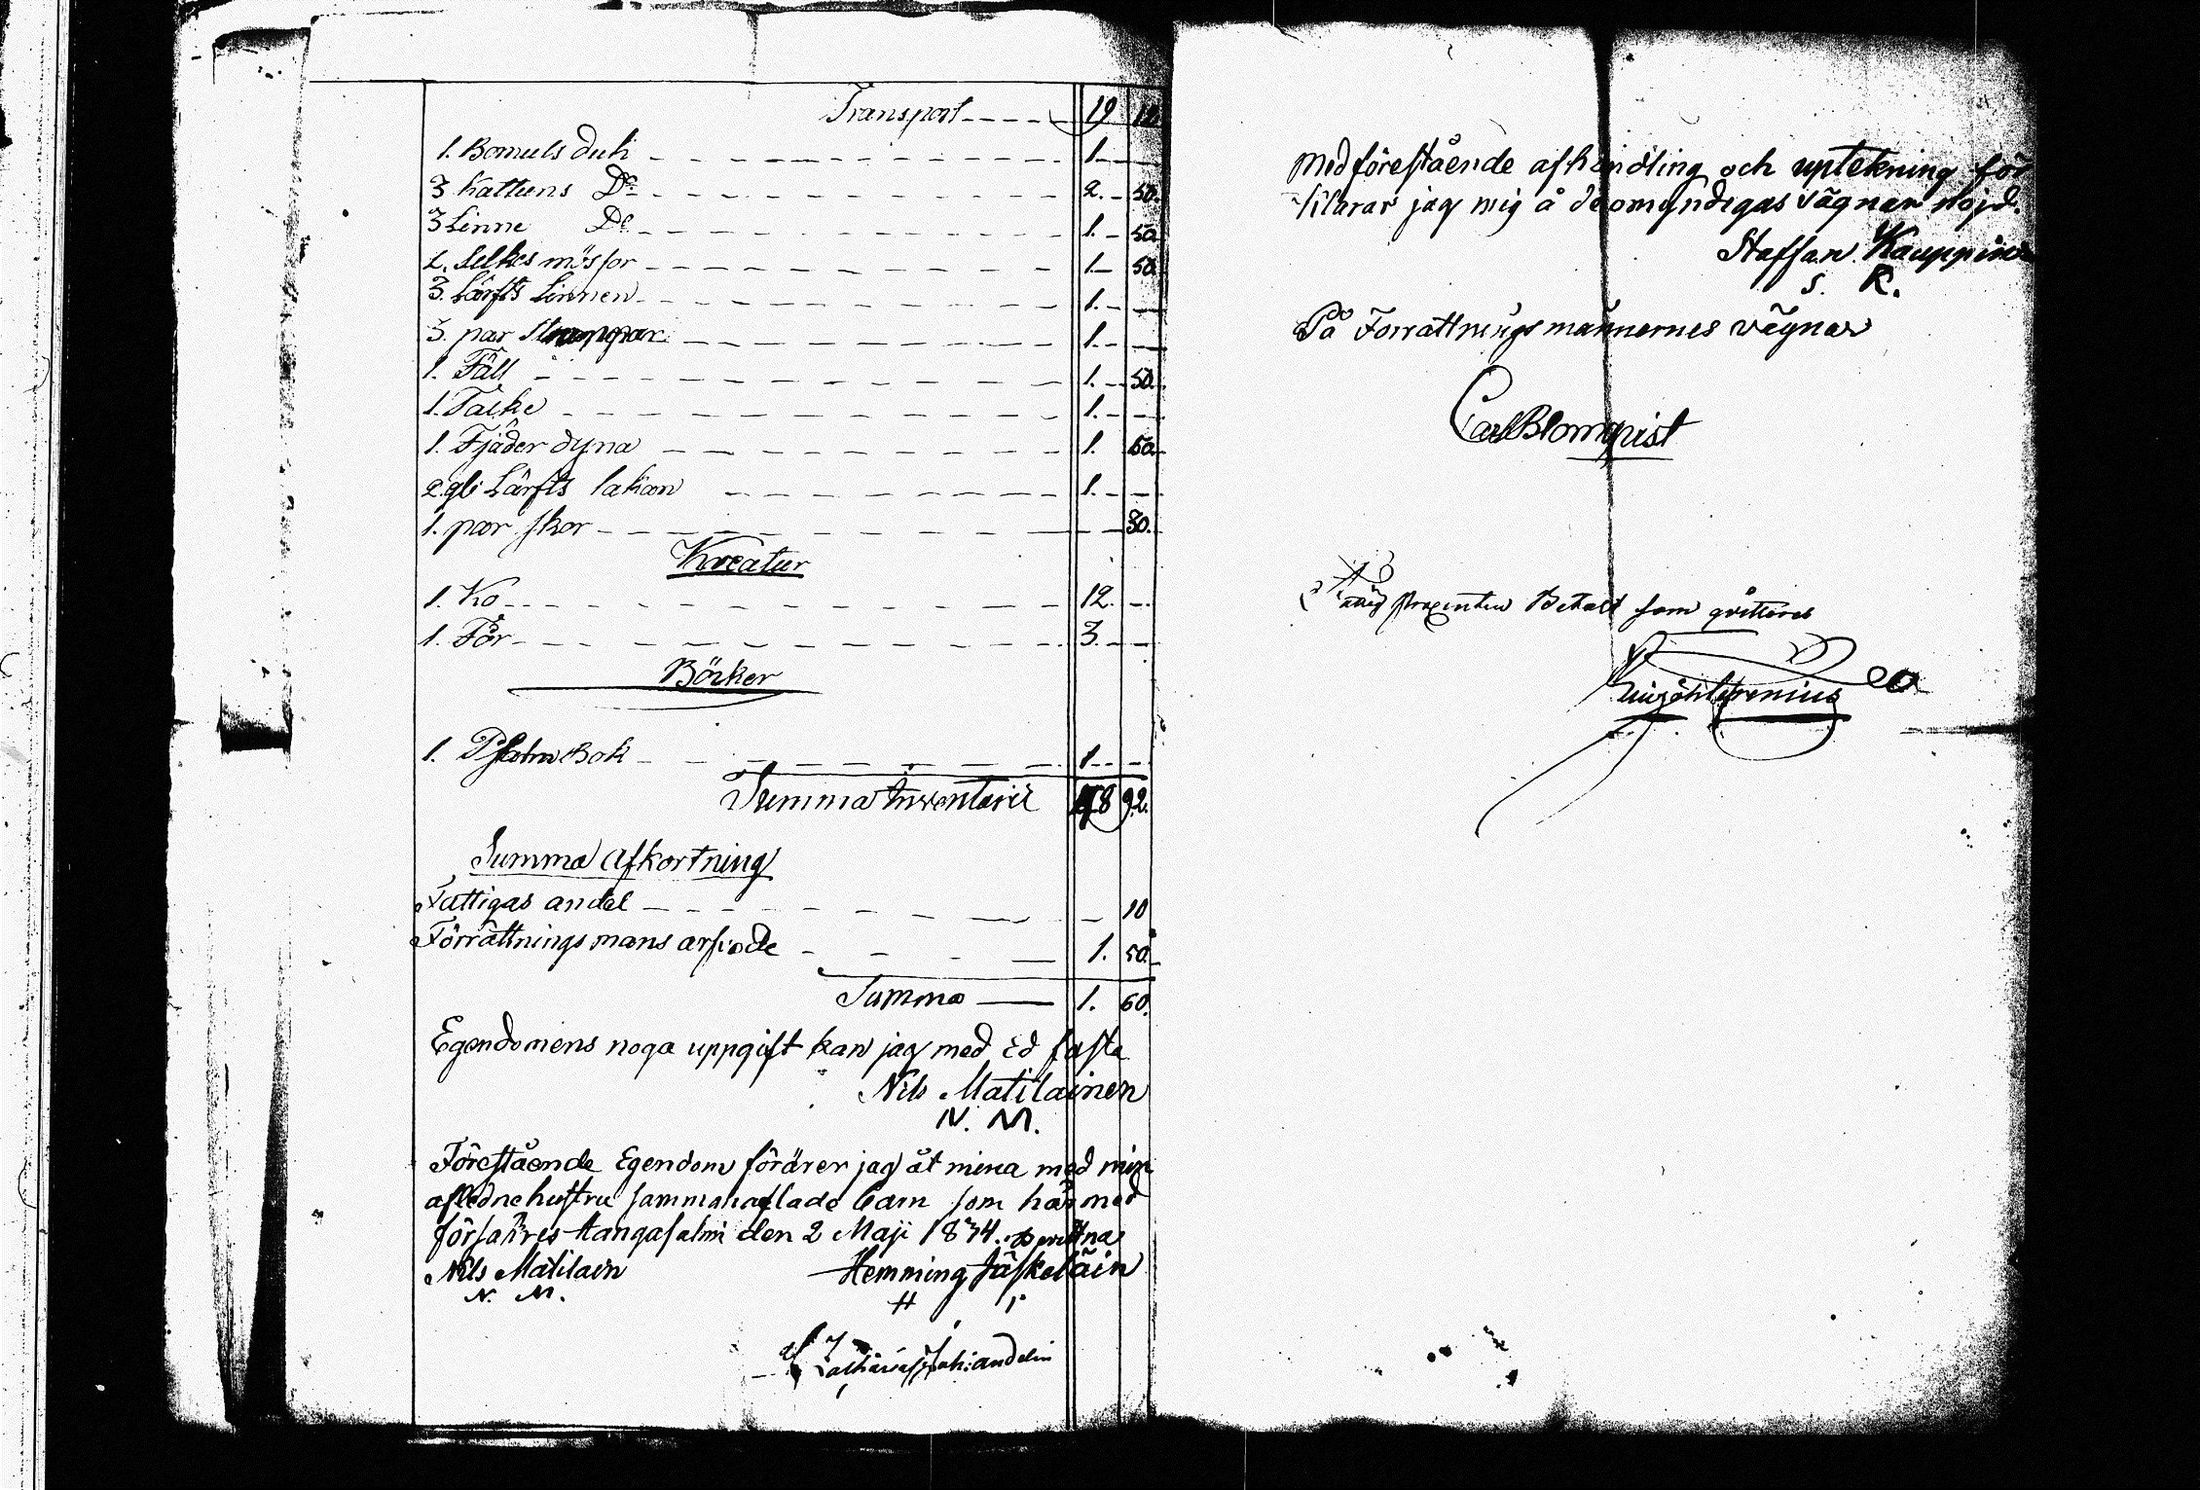 Transport 19 12.
1. Bomuls duk 1.
3 Kattuns Do 2. 50.
3 Linne Do 1. 50
2. Selkes mössor 1. 50.
3. Lärfts Linnen 1.
3. par Strumpor 1.
1. Fäll 1. 50.
1. Täcke 1.
1. Fjäder dyna 1. 50.
2. gli Lärfts lakan 1.
1. par skor 30.
Kreatur
1. Ko 12.
1. Får 3.
Böcker
1. Psalm Bok 1
Summa Inventarie 48 92.
Summa Afkortning
Fattigas andel 10
Förrättnings mans arfvode 1. 50.
Summa 1. 60.
Egendomens noga uppgift kan jag med Ed fäste
Nils Matilainen
N. M.
Förestående Egendom förärer jag åt mina med min
aflednehustru sammanaflade barn som härmed
försäkres Kangasalmi den 2 Maji 1834.
Nils Matilain Hemming Jäskeläin
N. M. H I
Medförestående afhandling och uptekning för
klarar jag mig å de omyndigas vägnar nöjd.
Staffan Kauppinen
S. K.
På Förrättningsmännernes vägnar
Carl Blomqvist
procenten Betalt som qvitteras